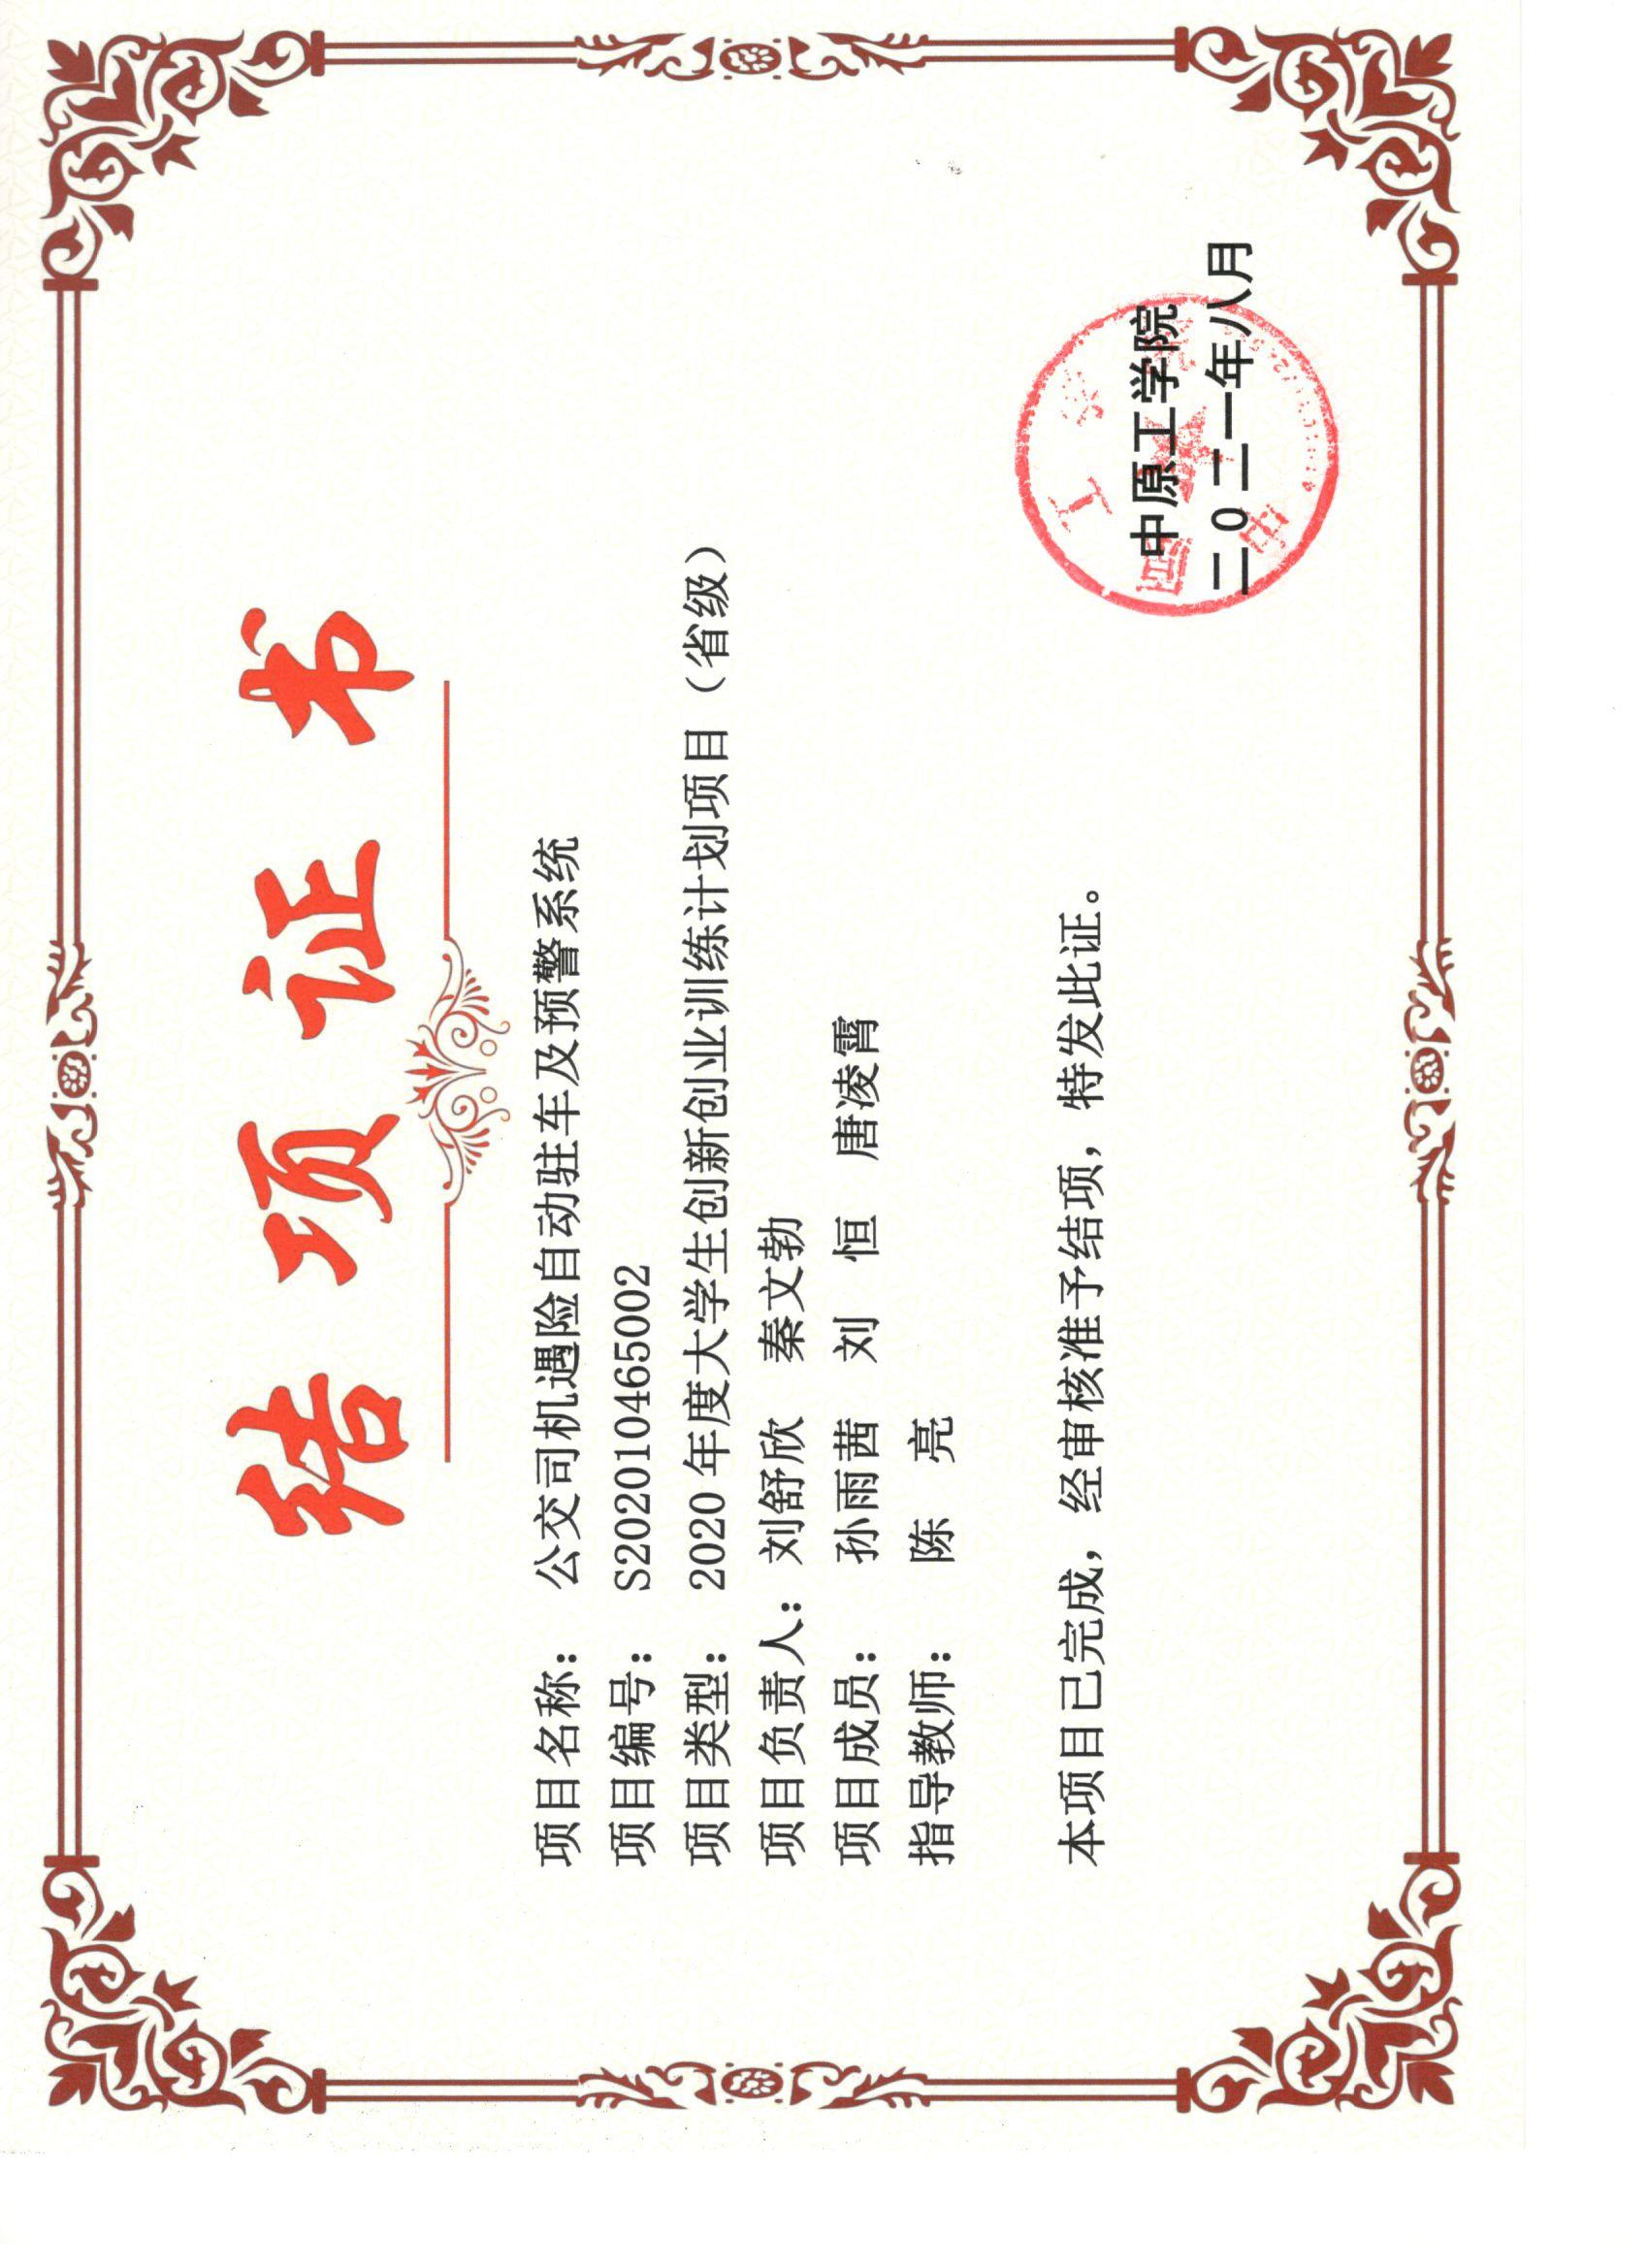 结项证书
项目名称： 公交司机遇险自动驻车及预警系统
项目编号： S202010465002
项目类型： 2020 年度大学生创新创业训练计划项目（省级）
项目负责人：刘舒欣 秦文勃
项目成员： 孙雨茜 刘 恒 唐凌霄
指导教师： 陈 亮
本项目已完成，经审核准予结项，特发此证。
中原工学院
二〇二一年八月